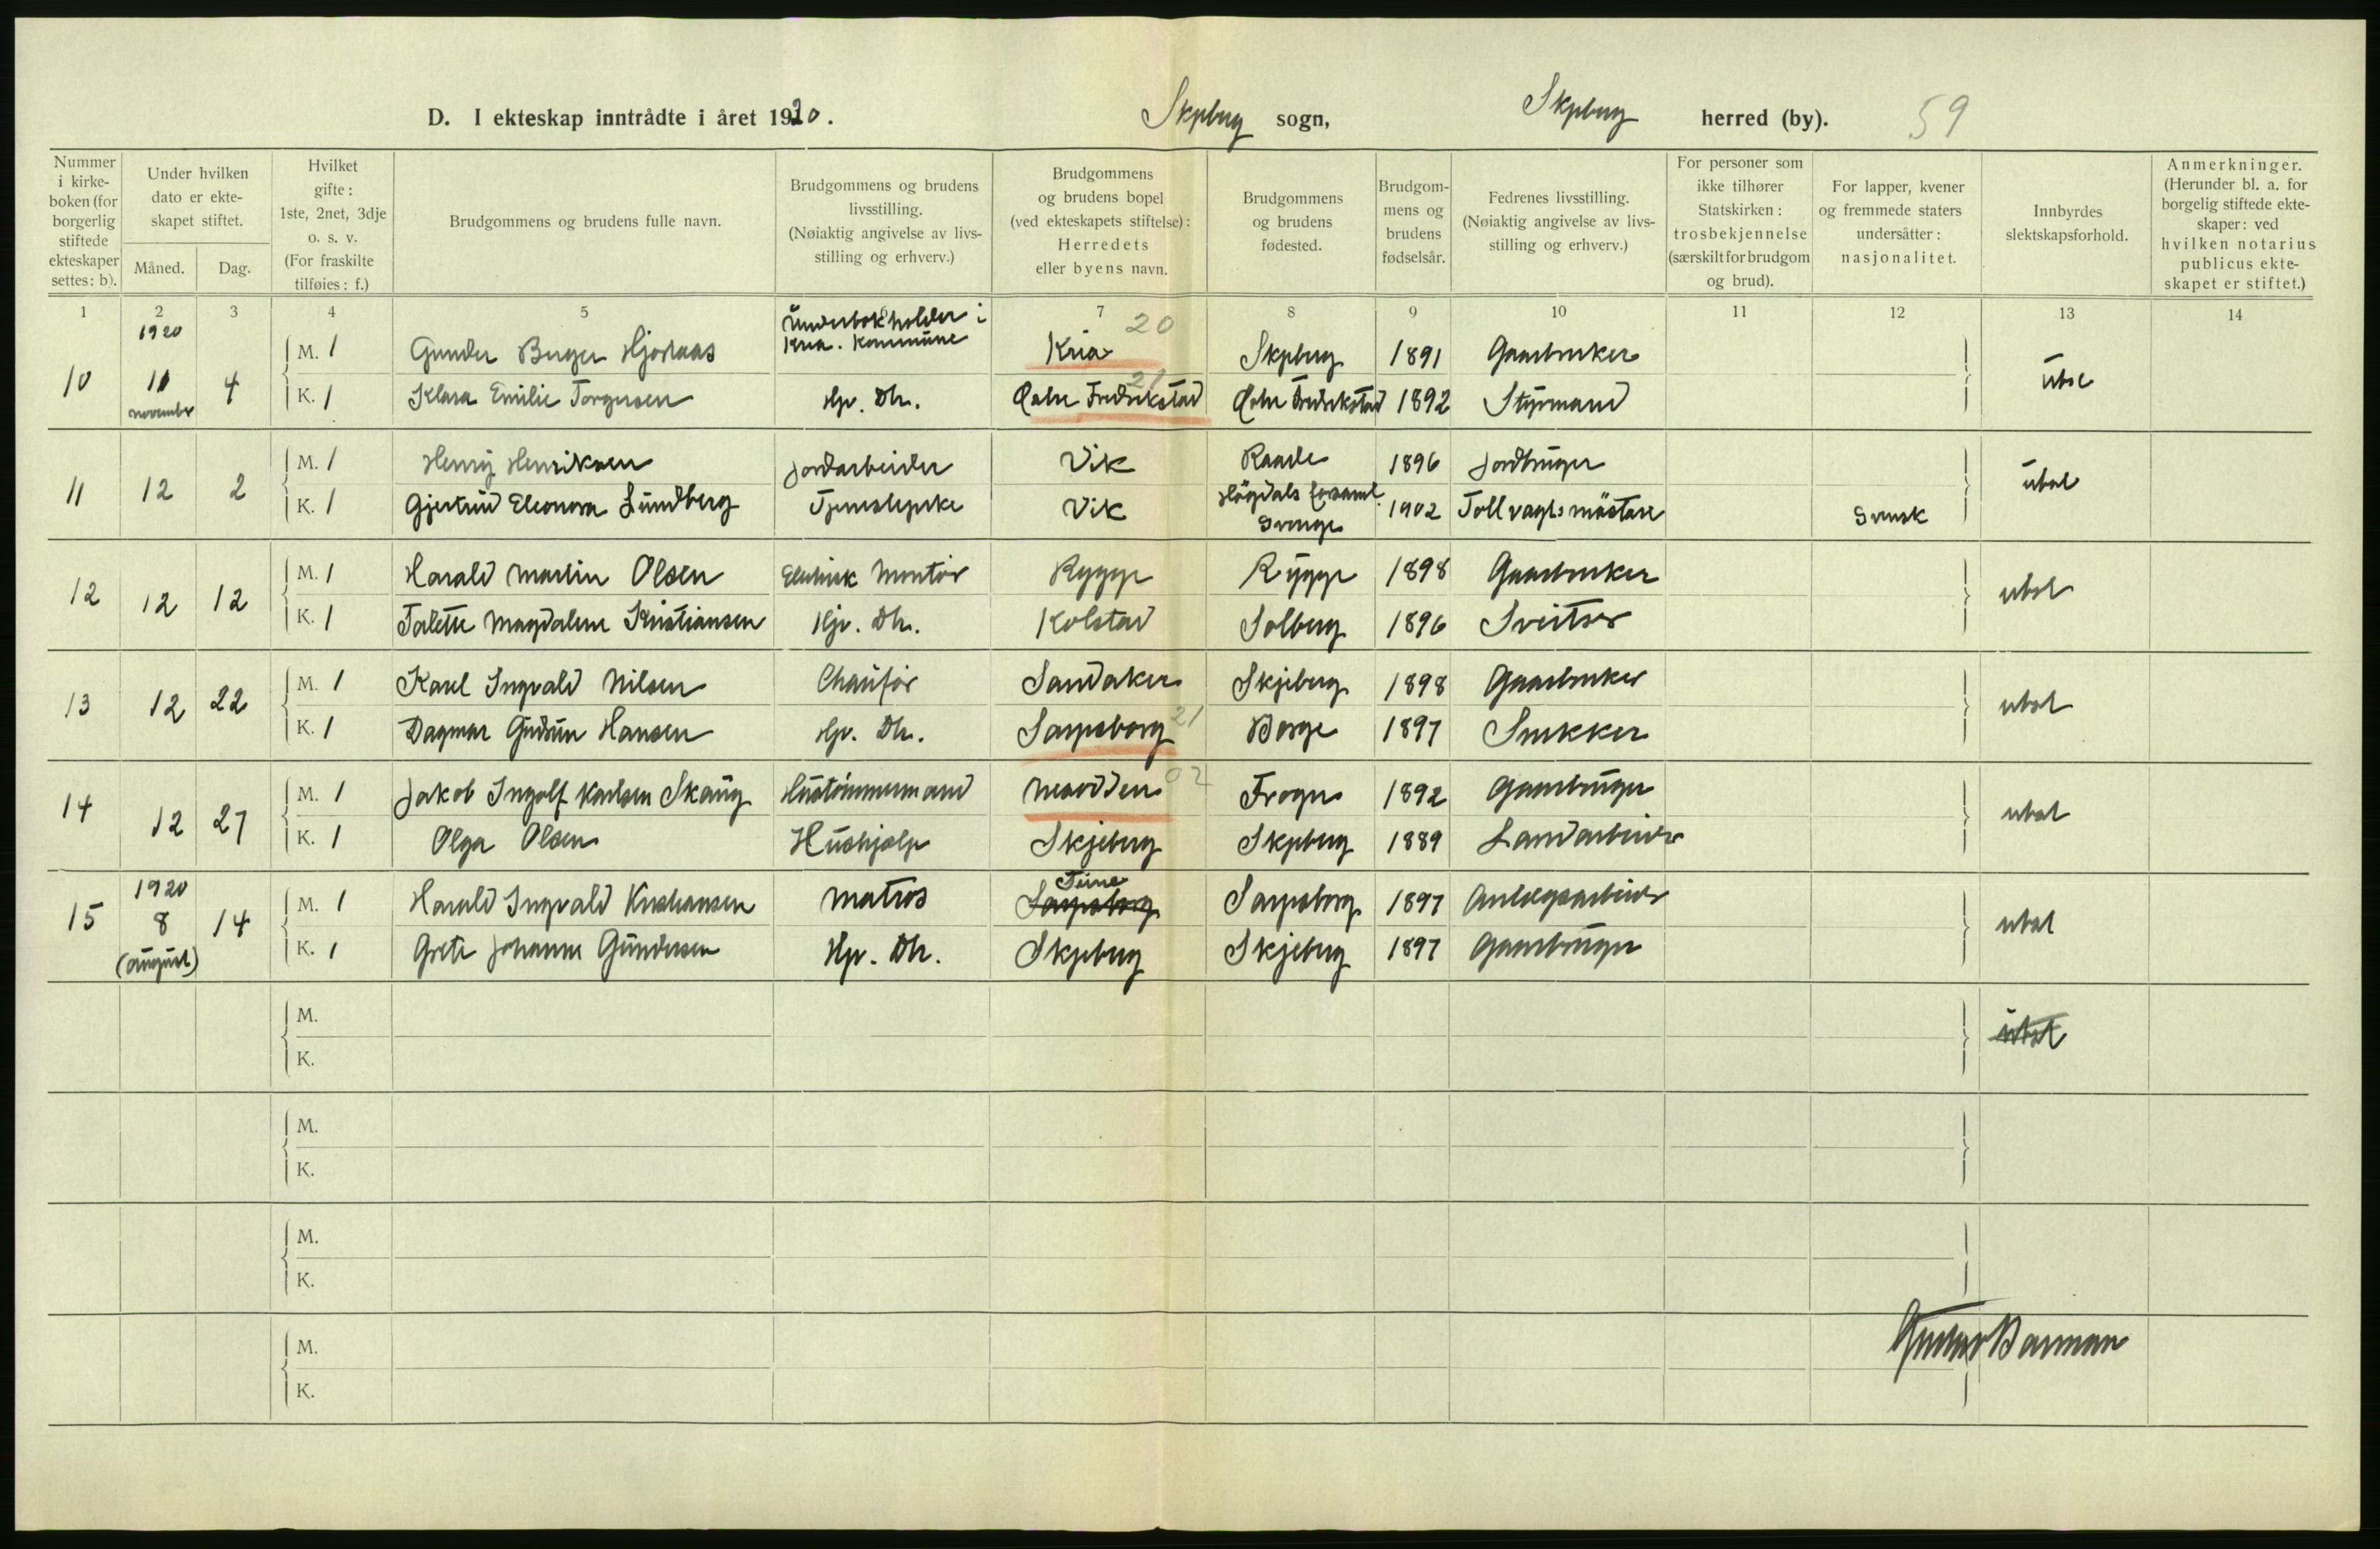 D. I ekteskap inntrådte i året 1920. Skjeberg sogn, Skjeberg herred (by). 59
Nummer i kirkeboken (for borgerlig stiftede ekteskaper settes: b).
Under hvilken dato er ekteskapet stiftet.
Måned. Dag.
Hvilket gifte: 1ste, 2net, 3dje o. s. v. (For fraskilte tilføies: f.)
Brudgommens og brudens fulle navn.
Brudgommens og brudens livsstilling. (Nøiaktig angivelse av livsstilling og erhverv.)
Brudgommens og brudens bopel (ved ekteskapets stiftelse): Herredets eller byens navn.
Brudgommens og brudens fødested.
Brudgommens og brudens fødselsår.
Fedrenes livsstilling. (Nøiaktig angivelse av livsstilling og erhverv.)
For personer som ikke tilhører Statskirken: trosbekjennelse (særskilt for brudgom og brud).
For lapper, kvener og fremmede staters undersåtter: nasjonalitet.
Innbyrdes slektskapsforhold.
Anmerkninger. (Herunder bl. a. for borgelig stiftede ekteskaper: ved hvilken notarius publicus ekteskapet er stiftet.)
1 2 3 4 5 7 8 9 10 11 12 13 14
1920 Underbokholder i Kria. Kommune 20
10 11 november 4 M. 1 Gunder Berger Kria Skjeberg 1891 Gaardbruker
K. 1 Klara Emilie Torgersen Hjv. Dtr. 21 Fredrikstad Fredrikstad 1892 Styrmand
11 12 2 M. 1 Henry Henriksen Jordarbeider Vik Raade 1896 Jordbruger ubesl
K. 1 Gjertrud Eleonora Lundberg Tjenestepike Vik Högdals forsaml. Sverige 1902 Toll vagtsmästare Svensk
12 12 12 M. 1 Harald Martin Olsen Elektrisk Montör Rygge Rygge 1898 Gaardbruker
K. 1 Talette Magdalene Kristiansen Hjv. Dtr. Kolstad Solberg 1896 Sveitser
13 12 22 M. 1 Karl Ingvald Nilsen Chauför Sandaker Skjeberg 1898 Gaardbruker
K. 1 Dagmar Gudrun Hansen Hjv. Dtr. Sarpsborg 21 Borge 1897 Snekker
14 12 27 M. 1 Jakob Ingolf Karlsen Skaug Hustömmermand Nesodden 02 Frogn 1892 Gaardbruger
K. 1 Olga Olsen Hushjælp Skjeberg Skjeberg 1889 Landarbeider
15 1920 8 (august) 14 M. 1 Harald Ingvald Kristiansen Matros Tune Sarpsborg Sarpsborg 1897 Anlægsarbeider
K. 1 Grete Johanne Gundersen Hjv. Dtr. Skjeberg Skjeberg 1897 Gaardbruger
M.
K.
M.
K.
M.
K.
M.
K.